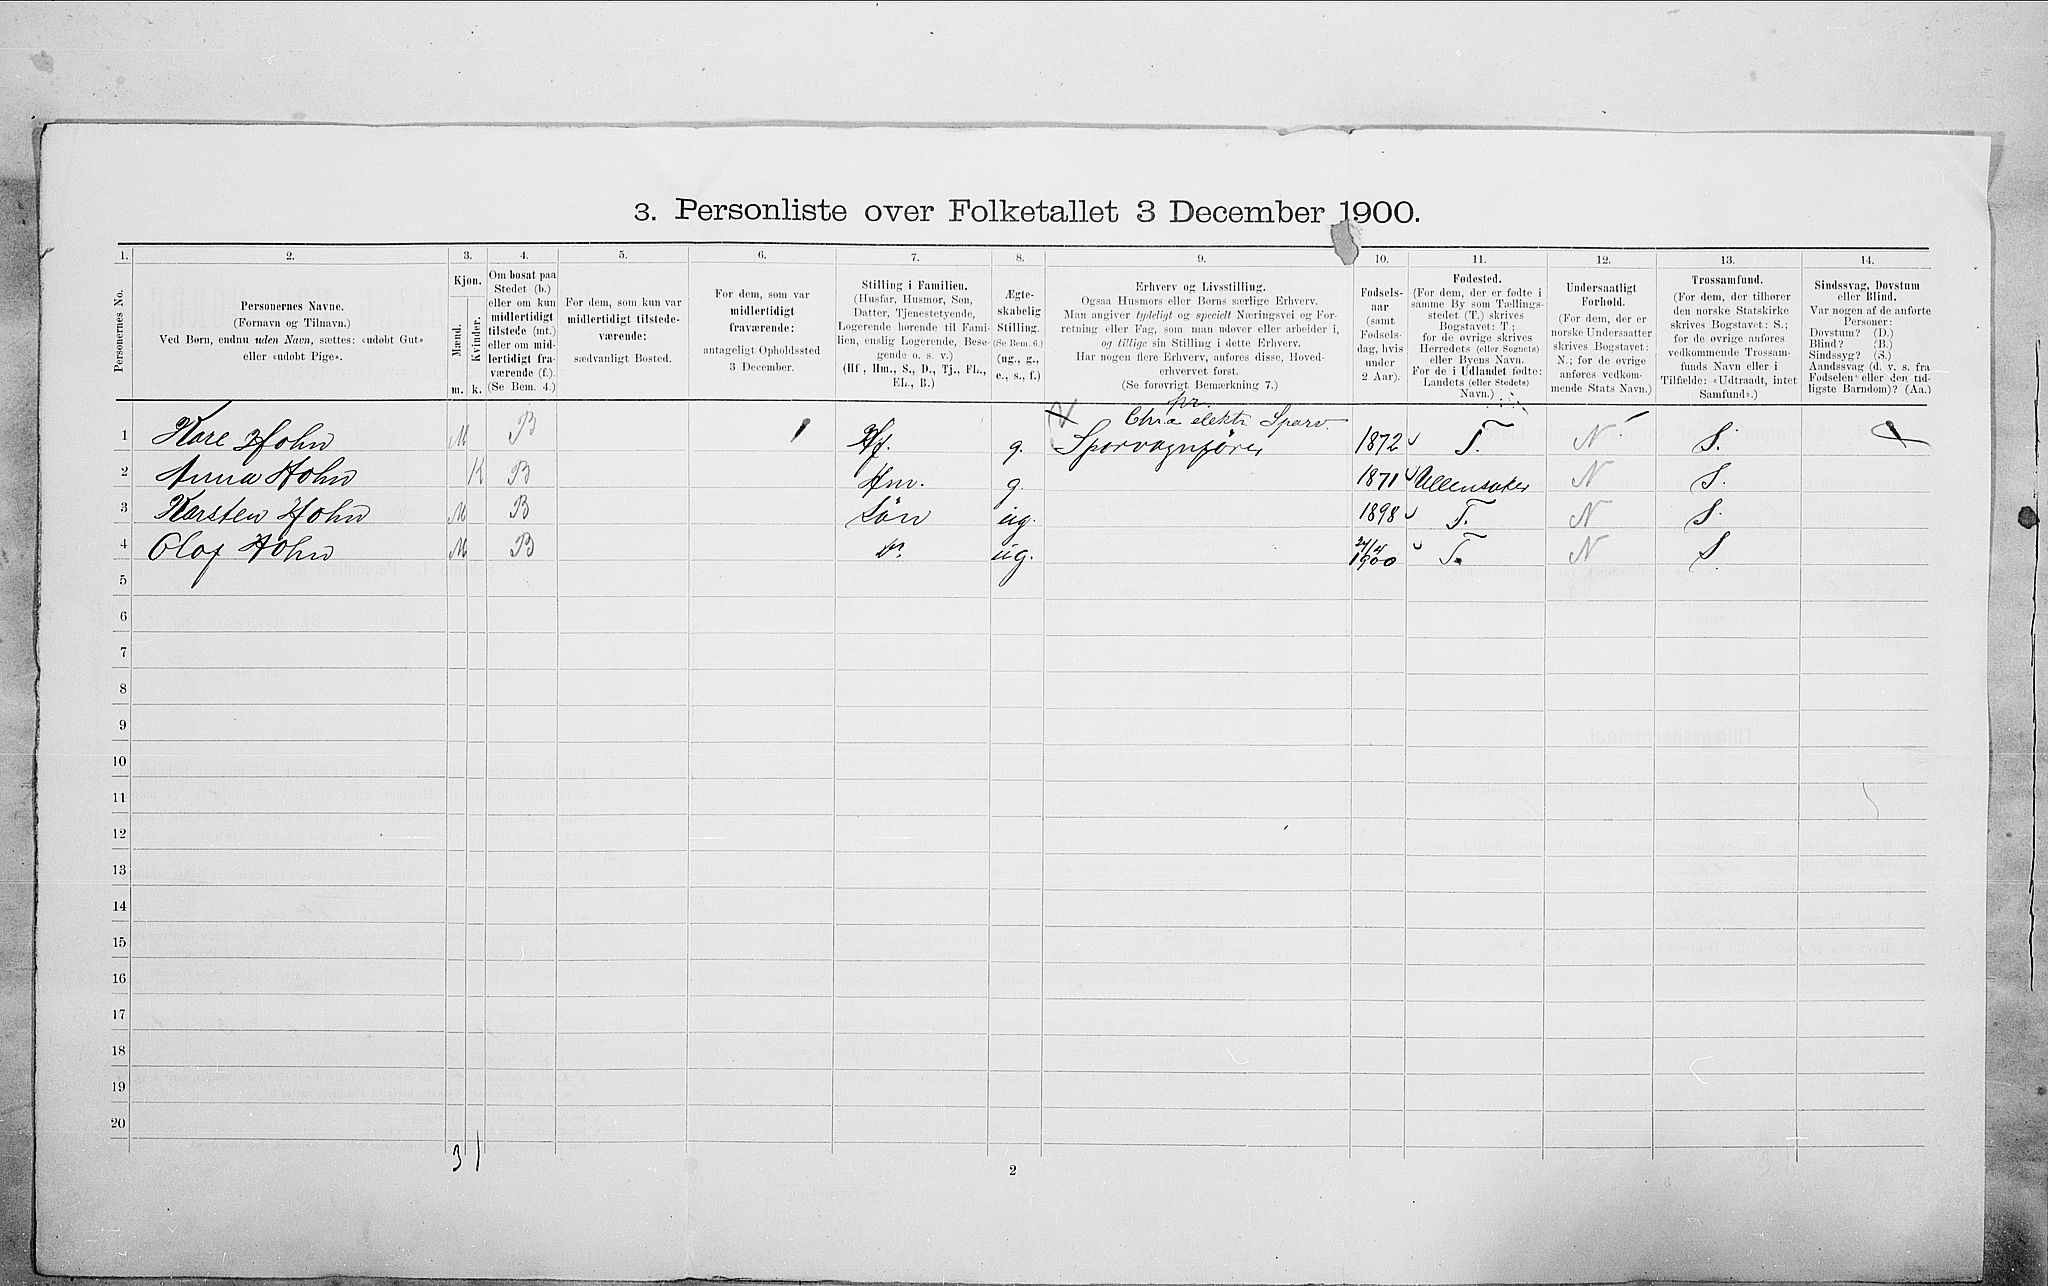 3. Personliste over Folketallet 3 December 1900.
1. 2. 3. 4. 5. 6. 7. 8. 9. 10. 11. 12. 13. 14.
Personernes No.
Personernes Navne.
(Fornavn og Tilnavn.)
Ved Børn, endnu uden Navn, sættes: «udøbt Gut»
eller «udøbt Pige».
Kjøn.
Mænd.
Kvinder.
m. k.
Om bosat paa
Stedet (b.)
eller om kun
midlertidigt
tilstede (mt.)
eller om mid-
lertidigt fra-
værende (f.).
(Se Bem. 4.)
For dem, som kun var
midlertidigt tilstede-
værende:
sædvanligt Bosted.
For dem, som var
midlertidigt
fraværende:
antageligt Opholdssted
3 December.
Stilling i Familien.
(Husfar, Husmor, Søn,
Datter, Tjenestetyende,
Logerende hørende til Fami-
lien, enslig Logerende, Besø-
gende o. s. v.)
(Hf., Hm., S., D., Tj., FL.,
EL., B.)
Ægte-
skabelig
Stilling.
(Se Bem. 6.)
(ug., g.,
e., s., f.)
Erhverv og Livsstilling.
Ogsaa Husmors eller Børns særlige Erhverv.
Man angiver tydeligt og specielt Næringsvei og For-
retning eller Fag, som man udøver eller arbeider i,
og tillige sin Stilling i dette Erhverv.
Har nogen flere Erhverv, anføres disse, Hoved-
erhvervet først.
(Se forøvrigt Bemærkning 7.)
Fødsels-
aar
(samt
Fødsels-
dag, hvis
under
2 Aar).
Fødested.
(For dem, der er fødte i
samme By som Tællings-
stedet (T.) skrives
Bogstavet: T.;
for de øvrige skrives
Herredets (eller Sognets)
eller Byens Navn.
For de i Udlandet fødte:
Landets (eller Stedets)
Navn.)
Undersaatligt
Forhold.
(For dem, der er
norske Undersaatter
skrives Bogstavet:
N.; for de øvrige
anføres vedkom-
mende Stats Navn.)
Trossamfund.
(For dem, der tilhører
den norske Statskirke
skrives Bogstavet: S.;
for de øvrige anføres
vedkommende Trossam-
funds Navn eller i
Tilfælde: «Udtraadt, intet
Samfund».)
Sindssvag, Døvstum
eller Blind.
Var nogen af de anførte
Personer:
Døvstum? (D.)
Blind? (B.)
Sindssyg? (S.)
Aandssvag (d. v. s. fra
Fødselen eller den tid-
ligste Barndom)? (Aa.)
pr.
Chra elektr Sporv.
1 Kare Hohn M B Hf. g. Sporvognfører 1872 T. N S.
2 Anna Hohn K B Hm. g. 1871 Ullensaker N S.
3 Karsten Hohn M B Søn ug. 1898 T. N S.
4 Olaf Hohn M B Do ug. 1900 T. N S.
5
6
7
8
9
10
11
12
13
14
15
16
17
18
19
20
3 1
2